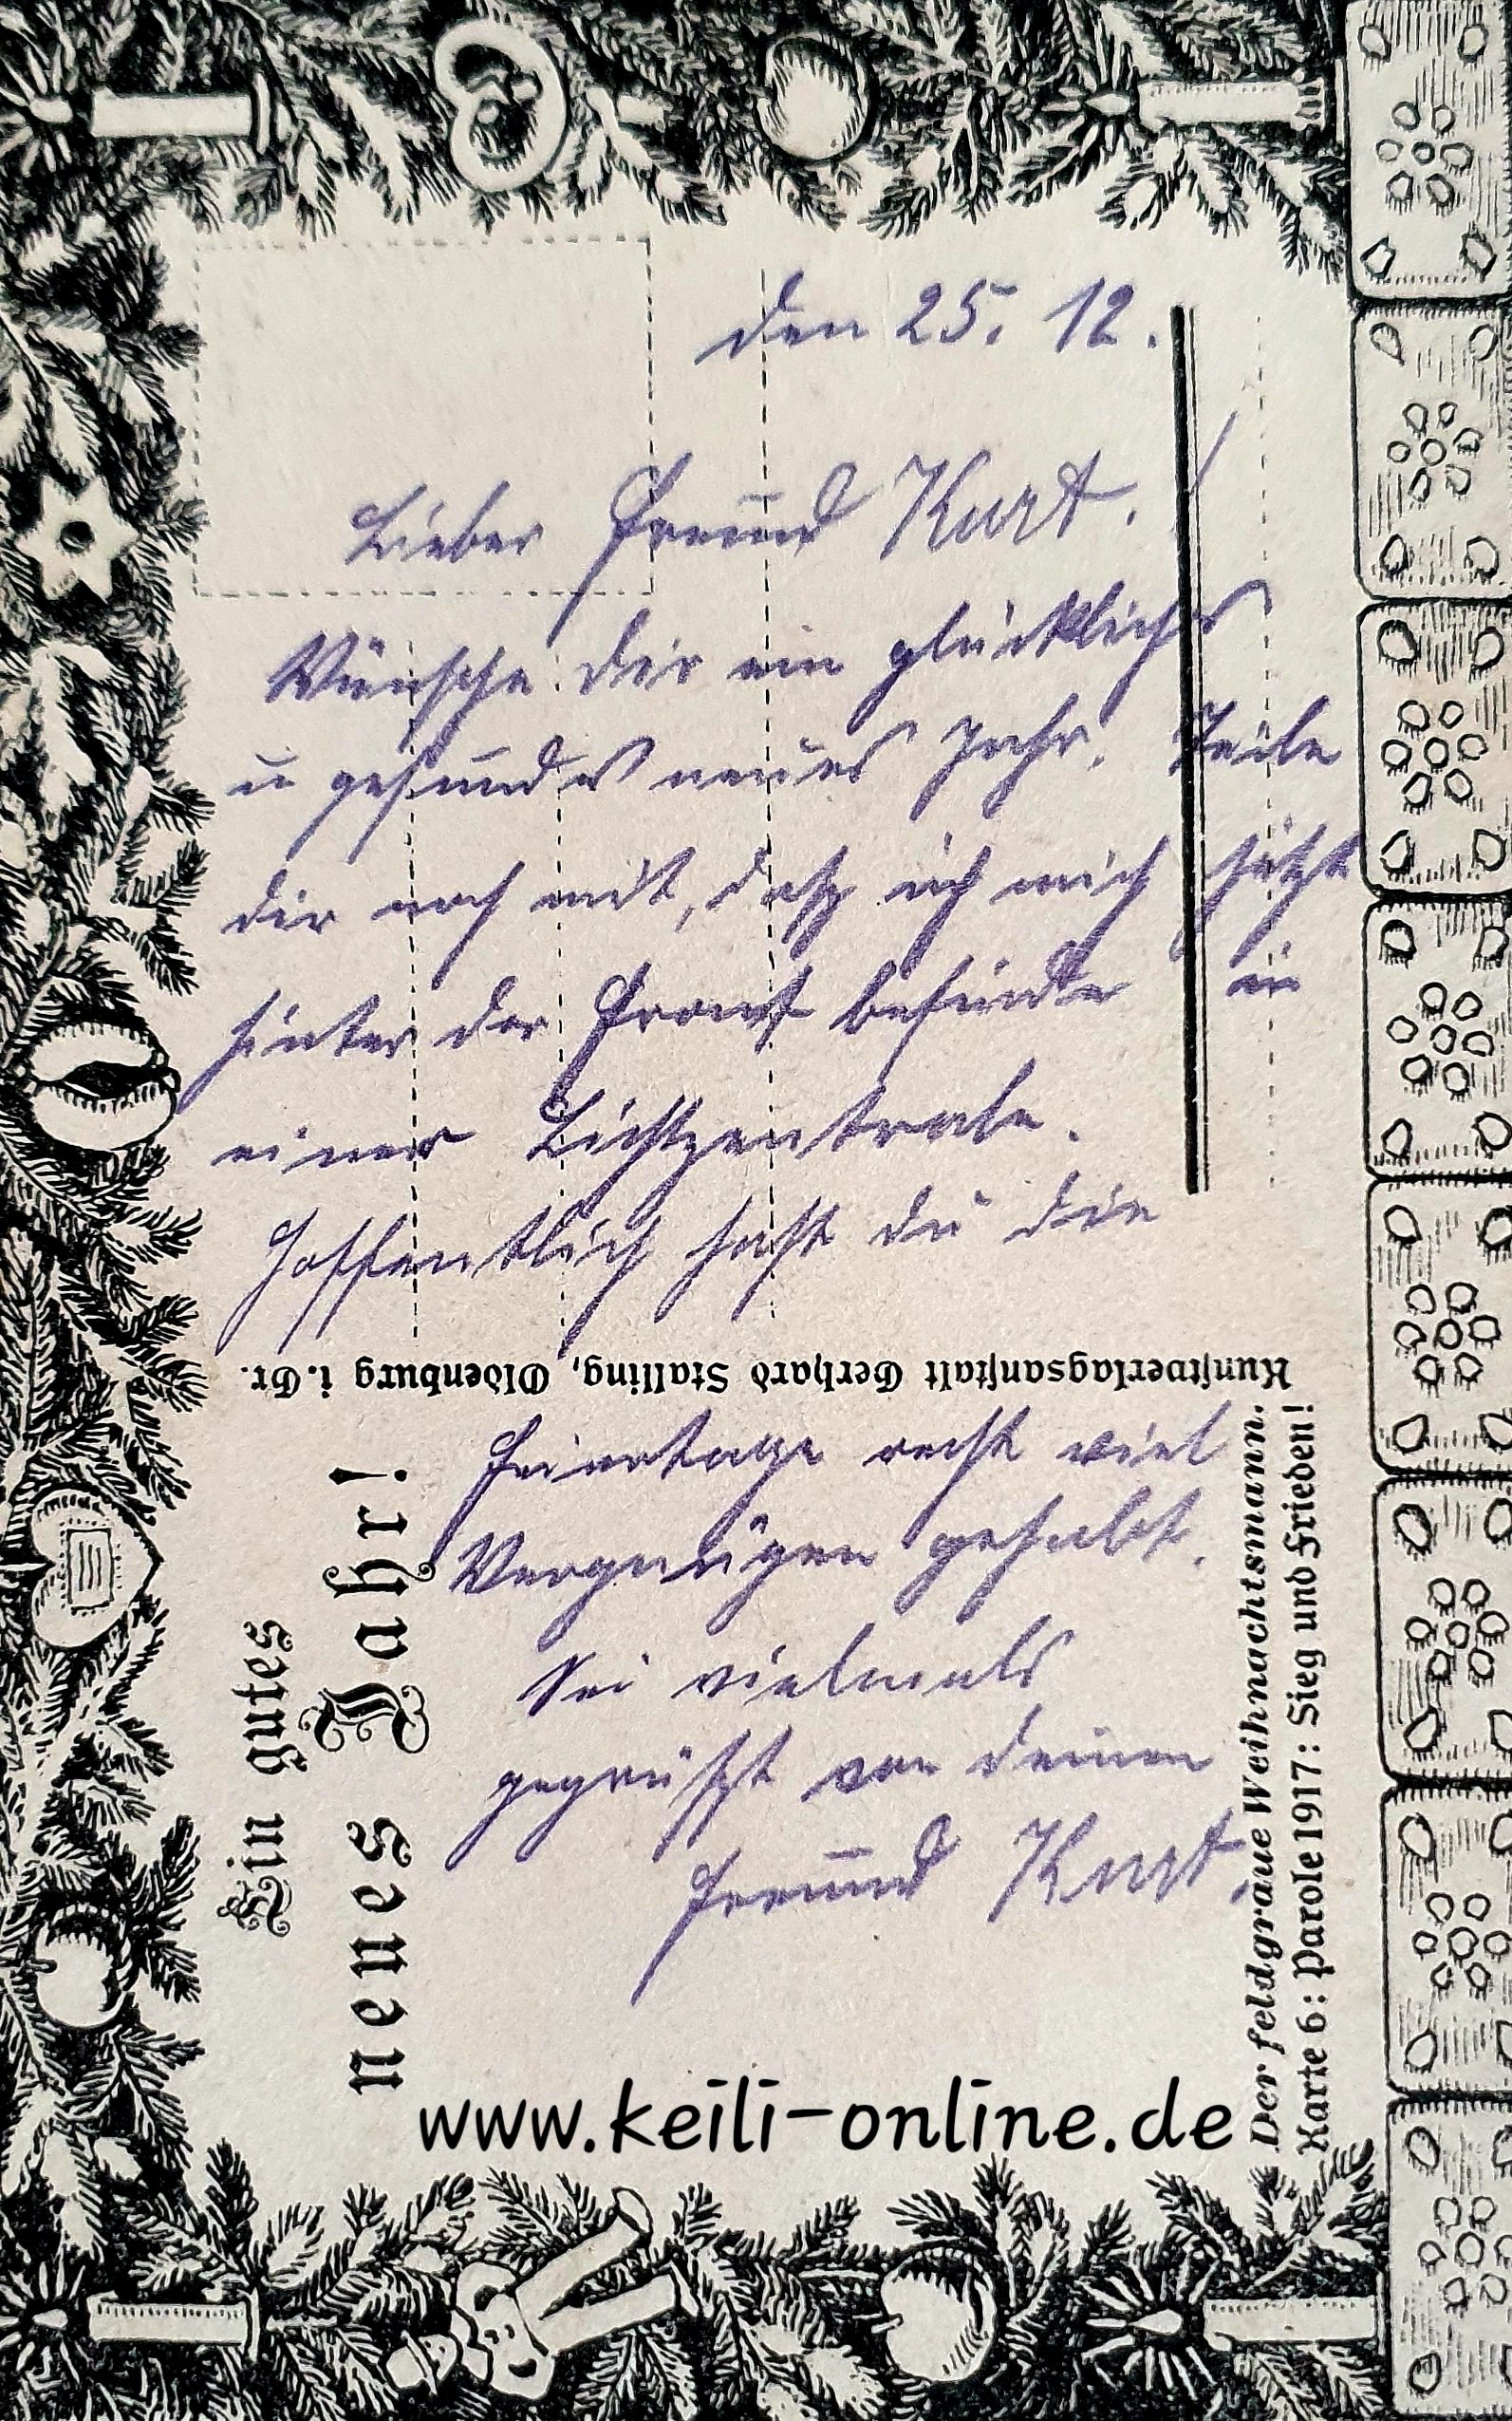 den 25. 12.
Lieber Freund Kurt!
Wünsche dir ein glückliches
u gesundes neues Jahr. Teile
dir noch mit, dasz ich mich jetzt
hinter der Front befinde in
einer Lichtzentrale.
Hoffentlich hast du die
Kunstverlagsanstalt Gerhard Stalling, Oldenburg i. Gr.
Feiertage recht viel
Vergnügen gehabt.
Sei vielmals
gegrüszt von deinen
Freund Kurt.
Ein gutes
neues Jahr!
Der feldgraue Weihnachtsmann.
Karte 6: Parole 1917: Sieg und Frieden!
www.keili-online.de